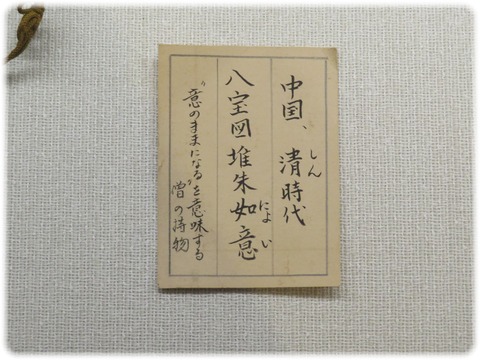 中国、清時代
しん
八宝図堆朱如意
にょい
"意のままになる"を意味する
僧の持物